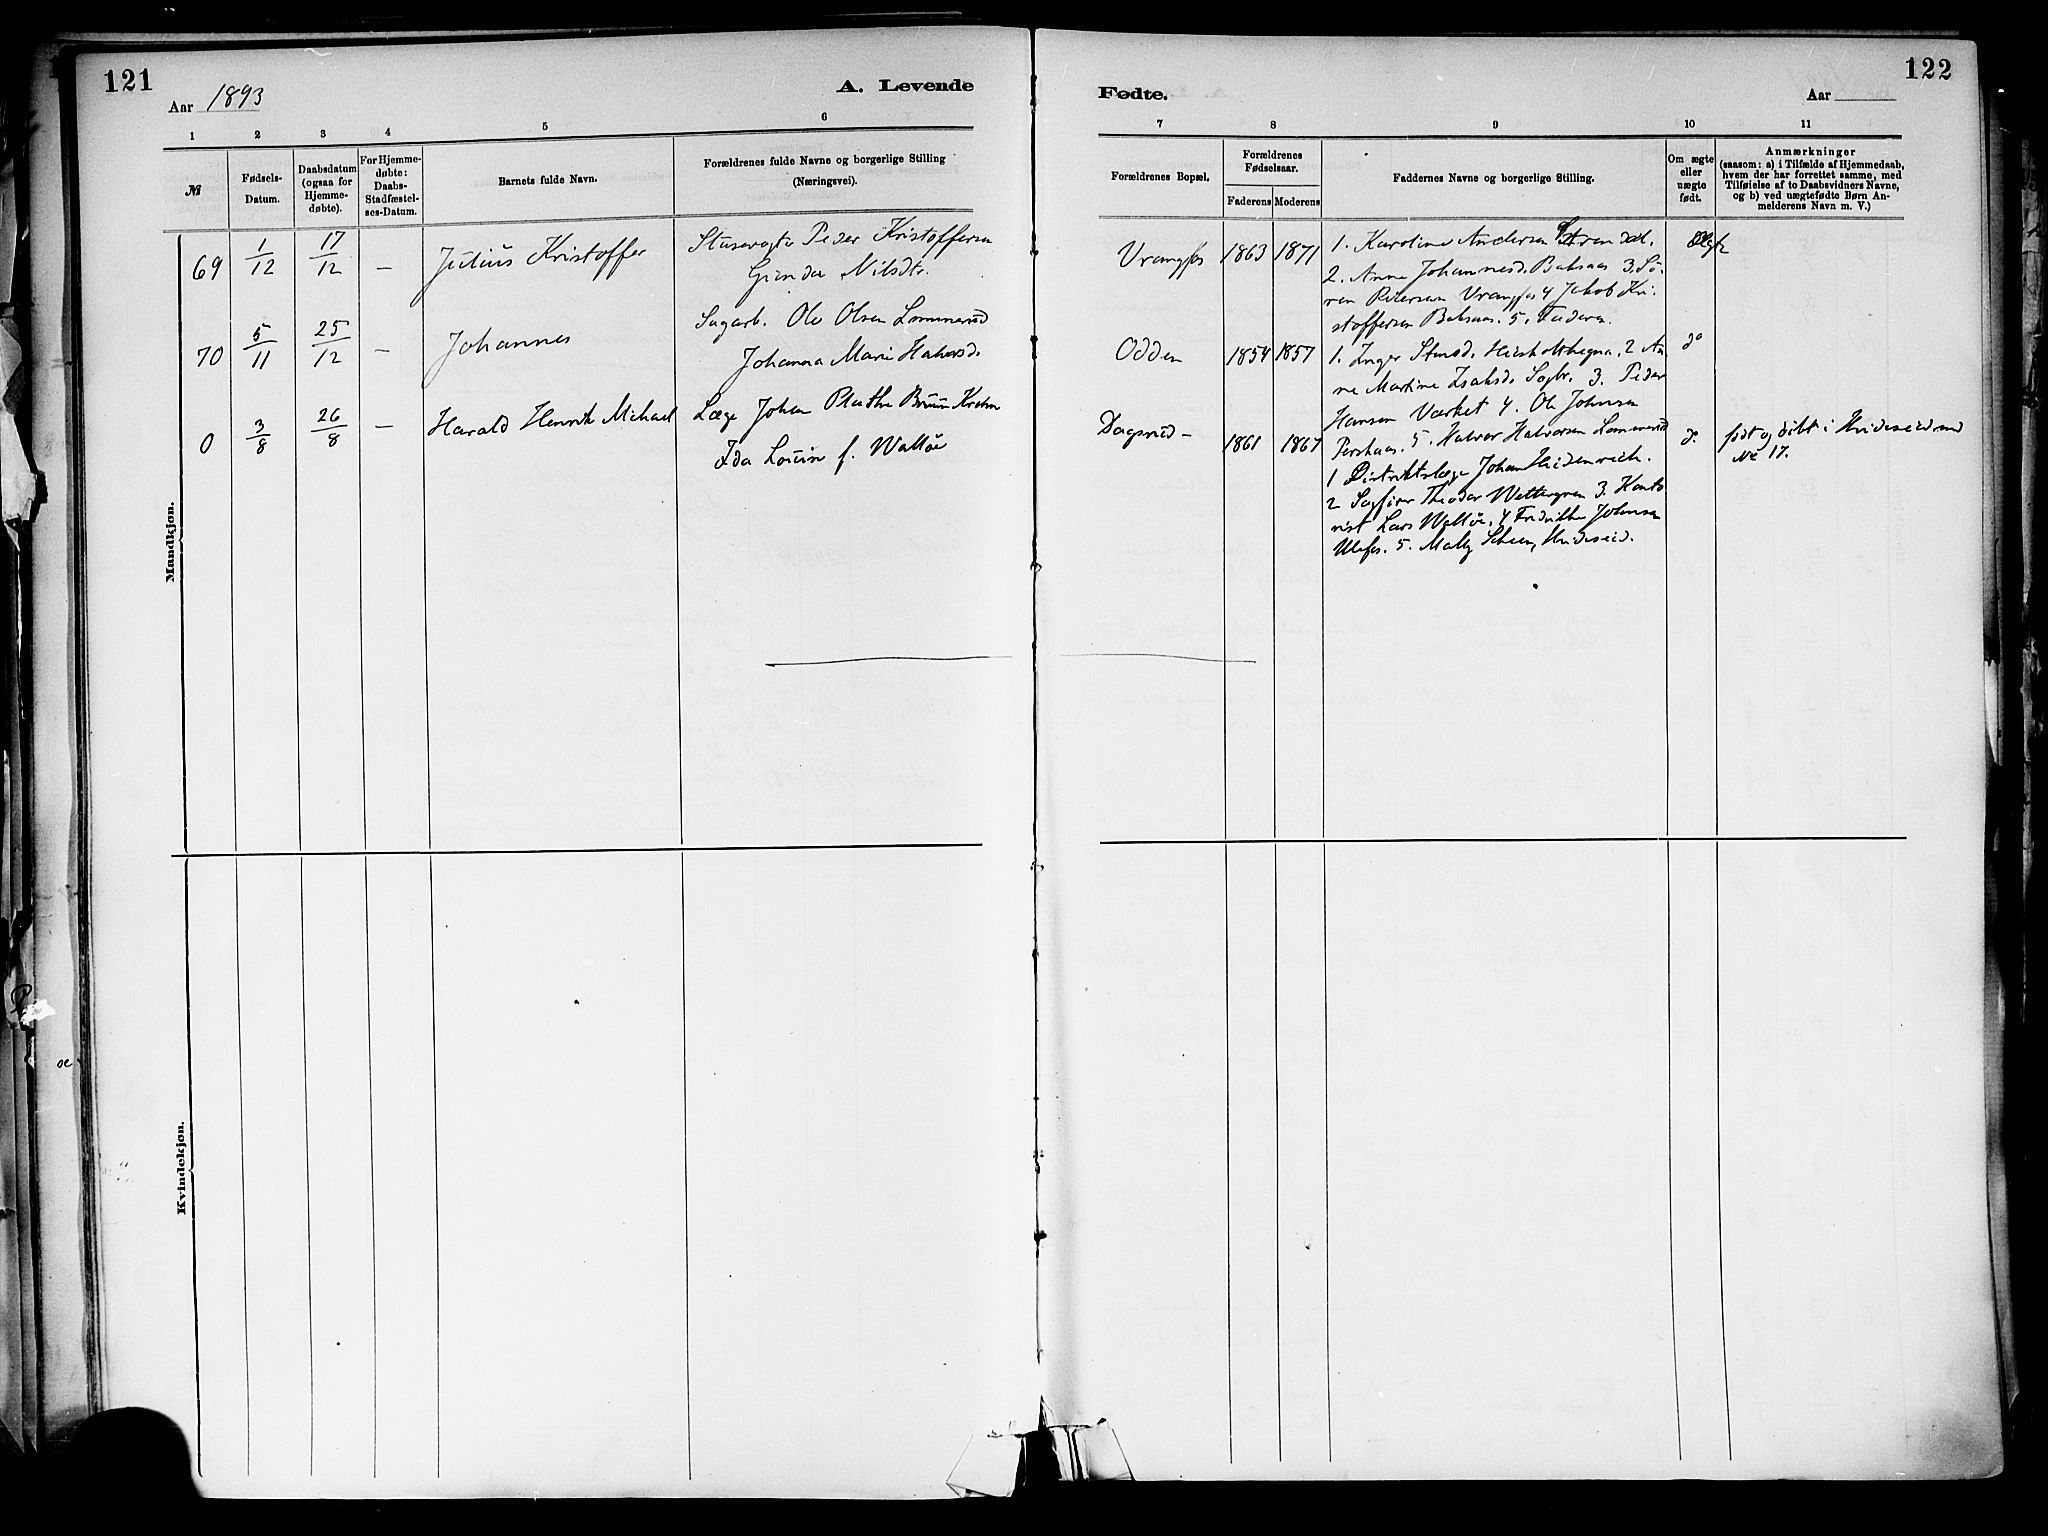 121
Aar 1893
A. Levende
1 2 3 4 5 6
№
Fødsels-
Datum.
Daabsdatum
(ogsaa for
Hjemme-
døbte).
For Hjemme-
døbte:
Daabs-
Stadfæstel-
ses-Datum.
Barnets fulde Navn.
Forældrenes fulde Navne og borgerlige Stilling
(Næringsvei).
Mandkjøn.
69 1/12 17/12 — Julius Kristoffer
Peder Kristoffersen
Gunda Nilsdtr.
70 5/11 25/12 — Johannes
Sagarb. Ole Olsen Lommerud
Johanna Marie Halvorsd.
0 3/8 26/8 — Harald Henrik Michael
Læge Johan Bruun
Ida Louise f. Walløe
Kvindekjøn.
122
Fødte.
Aar
7 8 9 10 11
Forældrenes Bopæl.
Forældrenes
Fødselsaar.
Faderens Moderens
Faddernes Navne og borgerlige Stilling.
Om ægte
eller
uægte
født.
Anmærkninger
(saasom: a) i Tilfælde af Hjemmedaab,
hvem der har forrettet samme, med
Tilføielse af to Daabsvidners Navne,
og b) ved uægtefødte Børn An-
melderens Navn m. V.)
Vrangfos 1863 1871
1. Karoline Andersen Strandal.
2. Anne Johannesd. Baksaas 3. Sö-
ren Petersen Vrangfos 4 Jakob Kri-
stoffersen Baksaas. 5. Faderen.
Ægte
Odden 1854 1857
1. Inger 2 An-
ne Martine Isaksd. 3. Peder
Hansen Værket 4. Ole Johnsen
5. Halvor Halvorsen Lommerud
do
Dagsrud — 1861 1867
1 Distriktslæge Johan Heidenreich.
2 Sagfører Theodor Wettergren 3. Konto-
rist Lars Walløe. 4 Fredrikke Johnsen
Ulefos. 5. Mally Scheen, Hvideseid.
do
født og døbt i Hvideseid
№ 17.